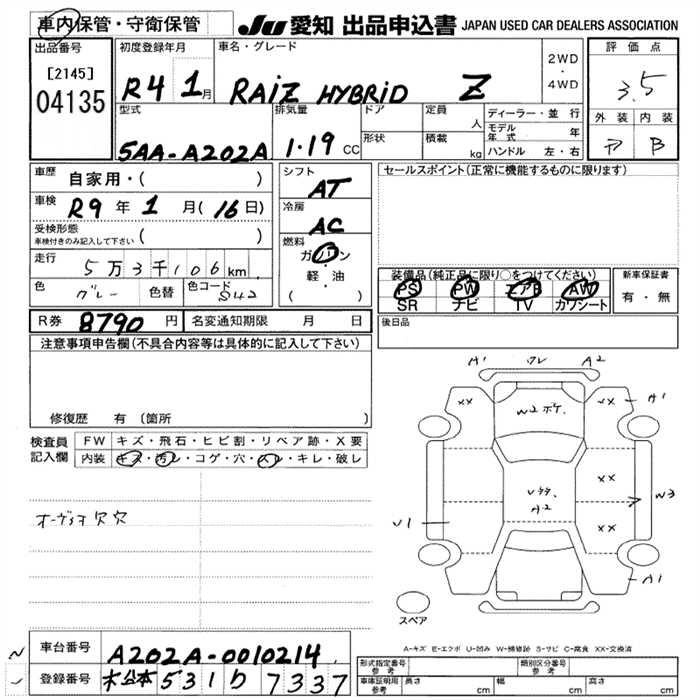 車内保管・守衛保管
JU 愛知 出品申込書 JAPAN USED CAR DEALERS ASSOCIATION
出品番号
[2145]
04135
初度登録年月
R4 1月
車名・グレード
RAIZ HYBRID Z
2WD
・
4WD
評価点
3.5
外装 内装
ア B
型式
5AA-A202A
排気量
1.19 CC
ドア
形状
定員 人
積載 kg
ディーラー・並行
モデル年式 年
ハンドル 左・右
車歴 自家用・( )
車検 R9年 1月(16日)
受検形態
車検付きのみ記入して下さい ( )
走行 5万3千106km
色 グレー 色替 色コード S42
シフト
AT
冷房
AC
燃料
ガソリン
・
軽・油
( )
セールスポイント(正常に機能するものに限ります)
装備品(純正品に限り○をつけてください)
PS PW エアB AW
SR ナビ TV カワシート
新車保証書
有・無
R券 8790円 名変通知期限 月 日
後日品
注意事項申告欄(不具合内容等は具体的に記入して下さい)
修復歴 有(箇所 )
検査員
記入欄
FW キズ・飛石・ヒビ割・リペア跡・X要
内装 キズ・汚レ・コゲ・穴・スレ・キレ・破レ
オーディオ欠穴
A1 ワレ A2
xx W2ボケ xx A1
xx
Uキズ
A2
xx
W3
U1
A1
スペア
A-キズ E-エクボ U-凹み W-補修跡 S-サビ C-腐食 XX-交換済
車台番号 A202A-0010214
登録番号 531 り 7337
形式指定番号
参考
類別区分番号
参考
車庫証明用
参考
長さ cm 幅 cm 高さ cm